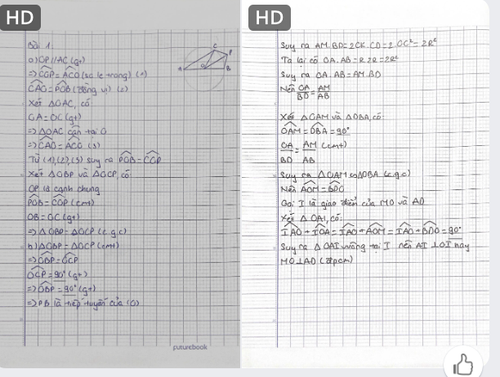 HD
Bài 1
a) OP // AC (gt)
=> \widehat{COP} = \widehat{ACO} (so le trong) (1)
\widehat{CAO} = \widehat{POB} (đồng vị) (2)
Xét △OAC, có:
OA = OC (gt)
=> △OAC cân tại O
=> \widehat{CAO} = \widehat{ACO} (3)
Từ (1), (2), (3) suy ra \widehat{POB} = \widehat{COP}
Xét △OBP và △OCP, có
OP là cạnh chung
\widehat{POB} = \widehat{COP} (cmt)
OB = OC (gt)
=> △OBP = △OCP (c.g.c)
b) △OBP = △OCP (cmt)
=> \widehat{OBP} = \widehat{OCP}
\widehat{OCP} = 90° (gt)
=> \widehat{OBP} = 90° (gt)
=> PB là tiếp tuyến của (O)
futurebook
HD
Suy ra AM.BD = 2CK.CD = 2.OC² = 2R²
Ta lại có OA.AB = R.2R = 2R²
Suy ra OA.AB = AM.BD
Nên OA/BD = AM/AB
Xét △OAM và △DBA, có:
\widehat{OAM} = \widehat{DBA} = 90°
OA/BD = AM/AB (cmt)
Suy ra △OAM ∽ △DBA (c.g.c)
Nên \widehat{AOM} = \widehat{BDO}
Gọi I là giao điểm của MO và AD
Xét △OAI, có:
\widehat{IAO} + \widehat{IOA} = \widehat{IAO} + \widehat{AOM} = \widehat{IAO} + \widehat{BDO} = 90°
Suy ra △OAI vuông tại I nên AI ⊥ OI hay
MO ⊥ AD (đpcm)